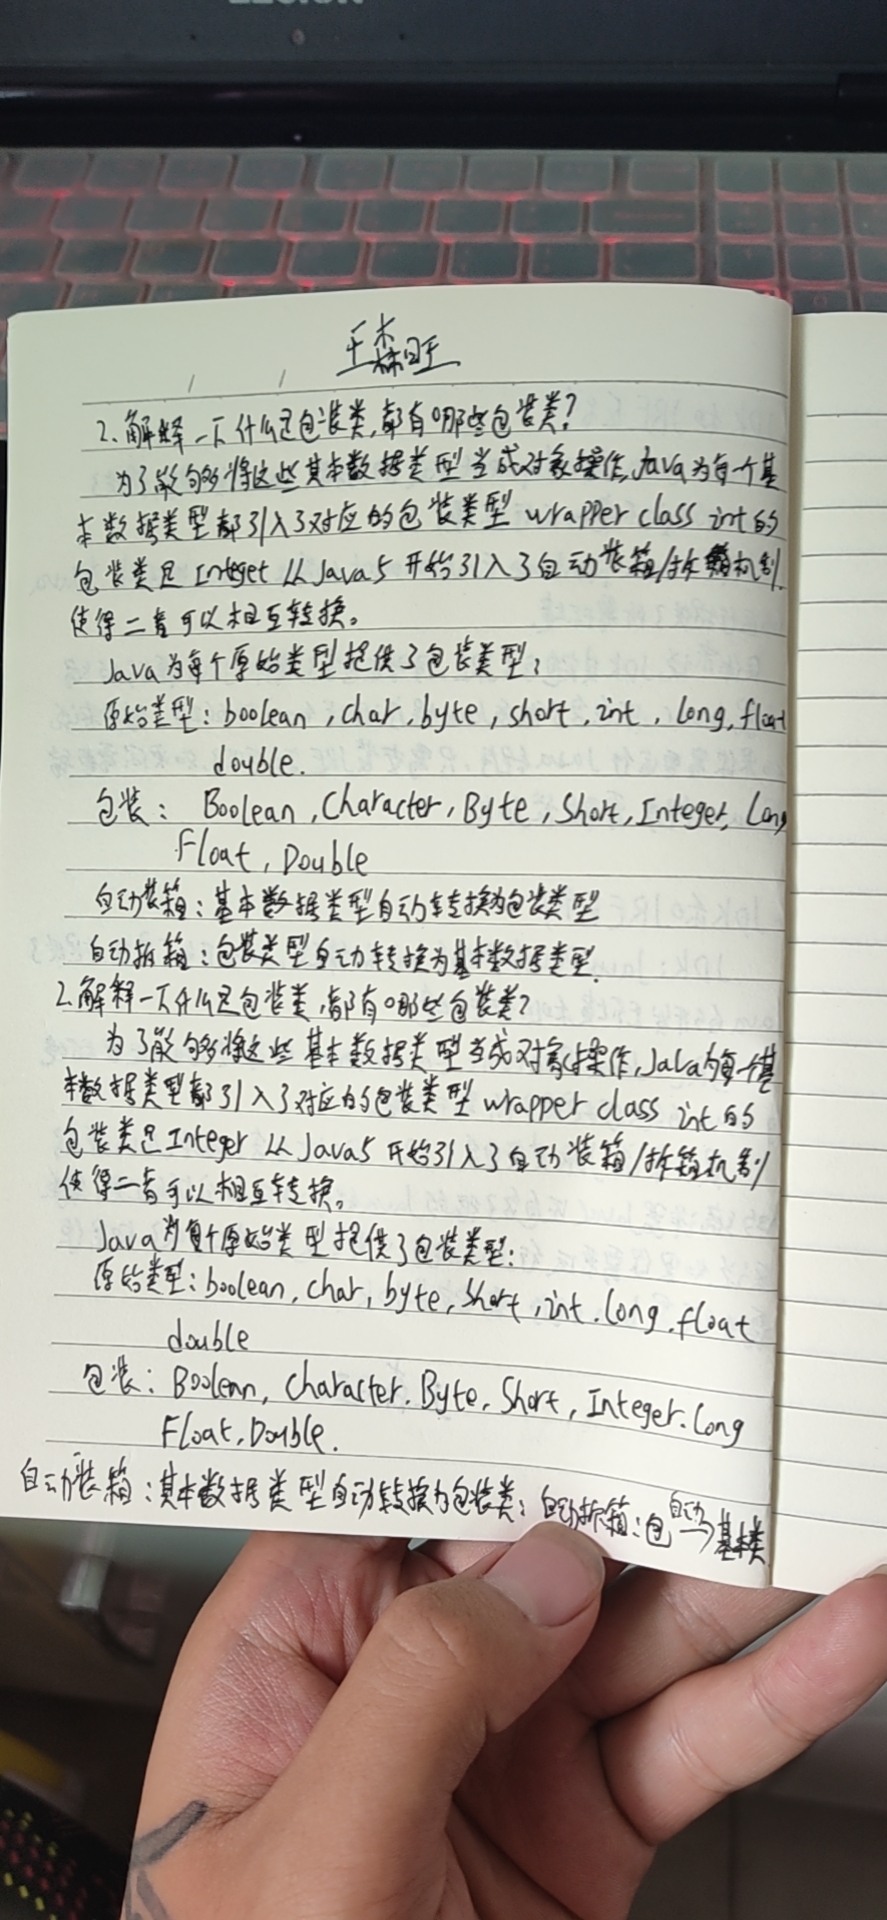 王森旺
2、解释一下什么是包装类,都有哪些包装类?
为了能够将这些其本数据类型当成对象操作,Java为每个基
本数据类型都引入了对应的包装类型 wrapper class int的
包装类是 Integet 从Java5 开始引入了自动装箱/拆箱机制.
使得二者可以相互转换。
Java为每个原始类型提供了包装类型:
原始类型: boolean, char, byte, short, int, long, float
double.
包装: Boolean, Character, Byte, Short, Integer, Long
Float, Double
自动装箱:基本数据类型自动转换为包装类型
自动拆箱:包装类型自动转换为基本数据类型.
2.解释一下什么是包装类,都有哪些包装类?
为了能够将这些基本数据类型当成对象操作,Java为每个基
本数据类型都引入了对应的包装类型 wrapper class int的
包装类是Integer 从Java5 开始引入了自动装箱/拆箱机制
使得二者可以相互转换。
Java为每个原始类型提供了包装类型:
原始类型: boolean, char, byte, short, int. long. float
double
包装: Boolean, Character. Byte, Short, Integer. Long
Float, Double.
自动装箱:其本数据类型自动转换为包装类; 自动拆箱:包自动→基本类